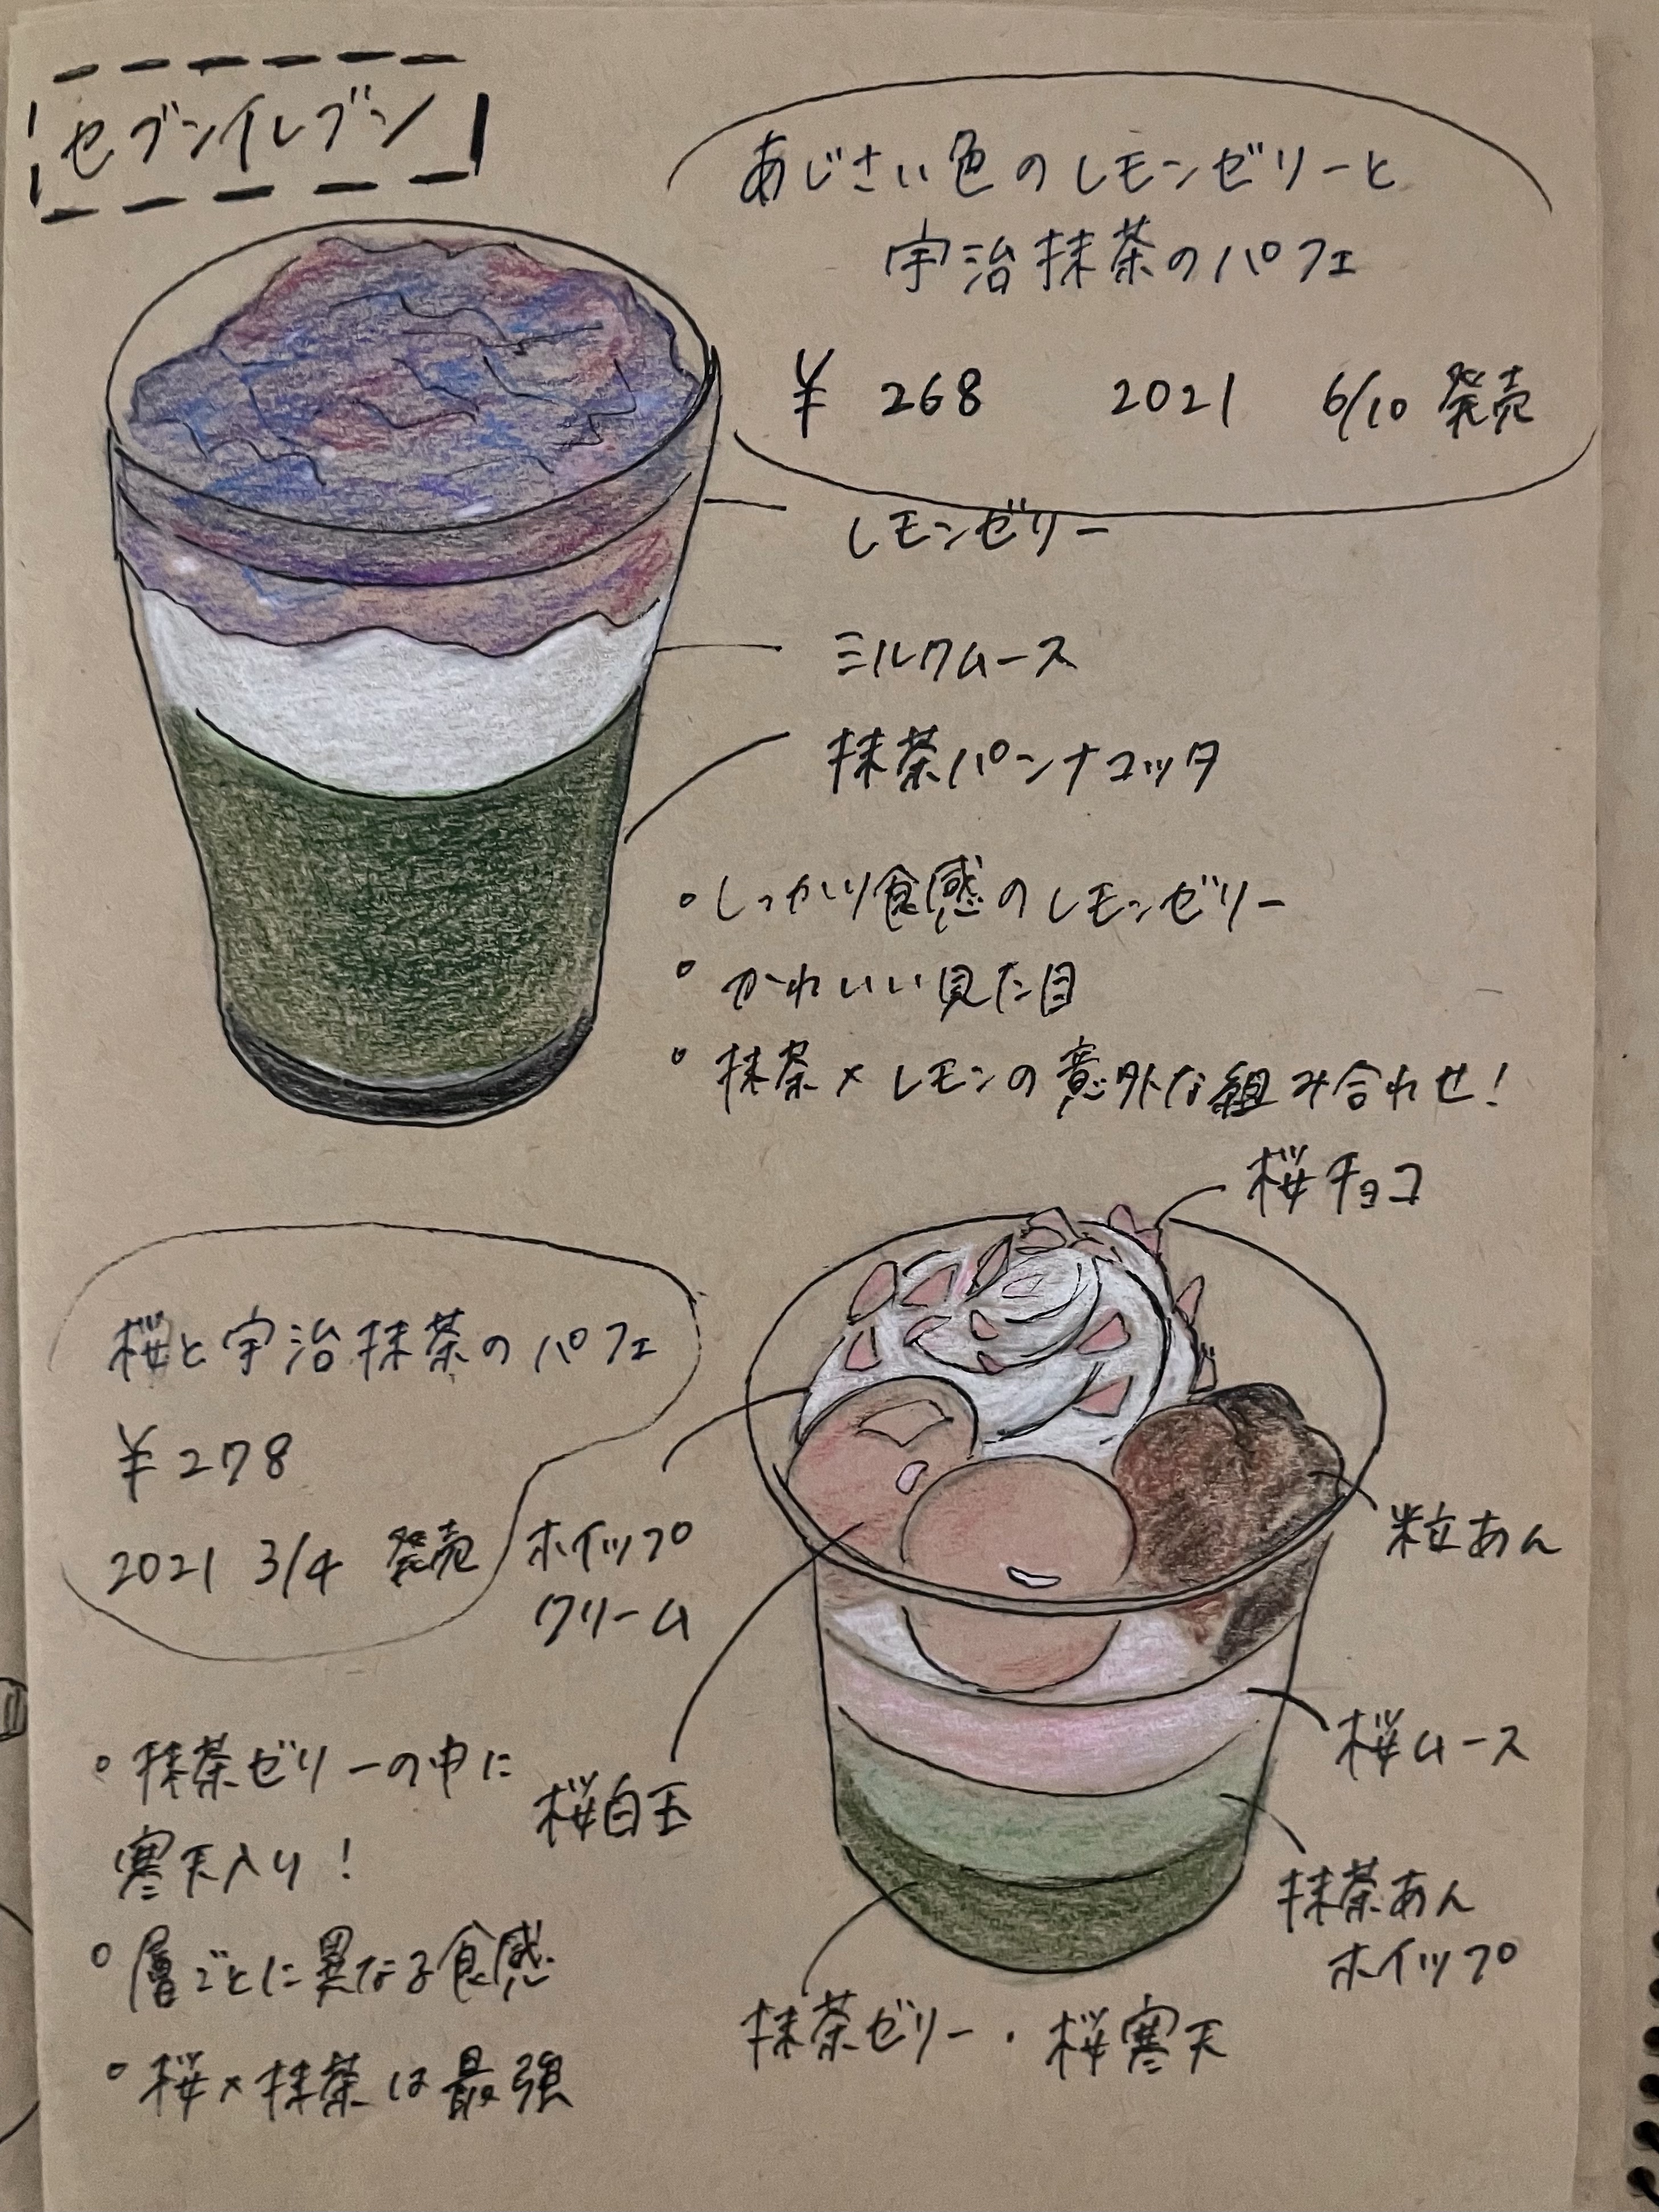 セブンイレブン
あじさい色のレモンゼリーと
宇治抹茶のパフェ
¥ 268 2021 6/10 発売
レモンゼリー
ミルクムース
抹茶パンナコッタ
• しっかり食感のレモンゼリー
• かわいい見た目
• 抹茶×レモンの意外な組み合わせ!
桜チョコ
桜と宇治抹茶のパフェ
¥278
2021 3/4 発売
ホイップ
クリーム
粒あん
桜白玉
桜ムース
抹茶あん
ホイップ
抹茶ゼリー・桜寒天
• 抹茶ゼリーの中に
寒天入り!
• 層ごとに異なる食感
• 桜×抹茶は最強